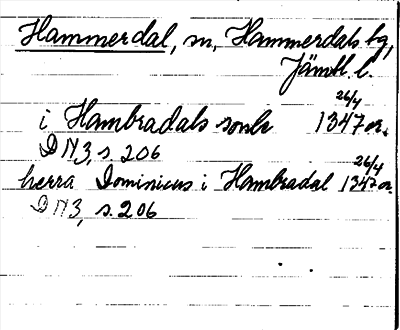 Hammerdal, sn, Hammerdals tg,
Jämtl. l.
i Hambradals sonb 26/4 1347 or.
DN3, s. 206
herra Dominicus i Hambradal 26/4 1347 or.
DN3, s. 206